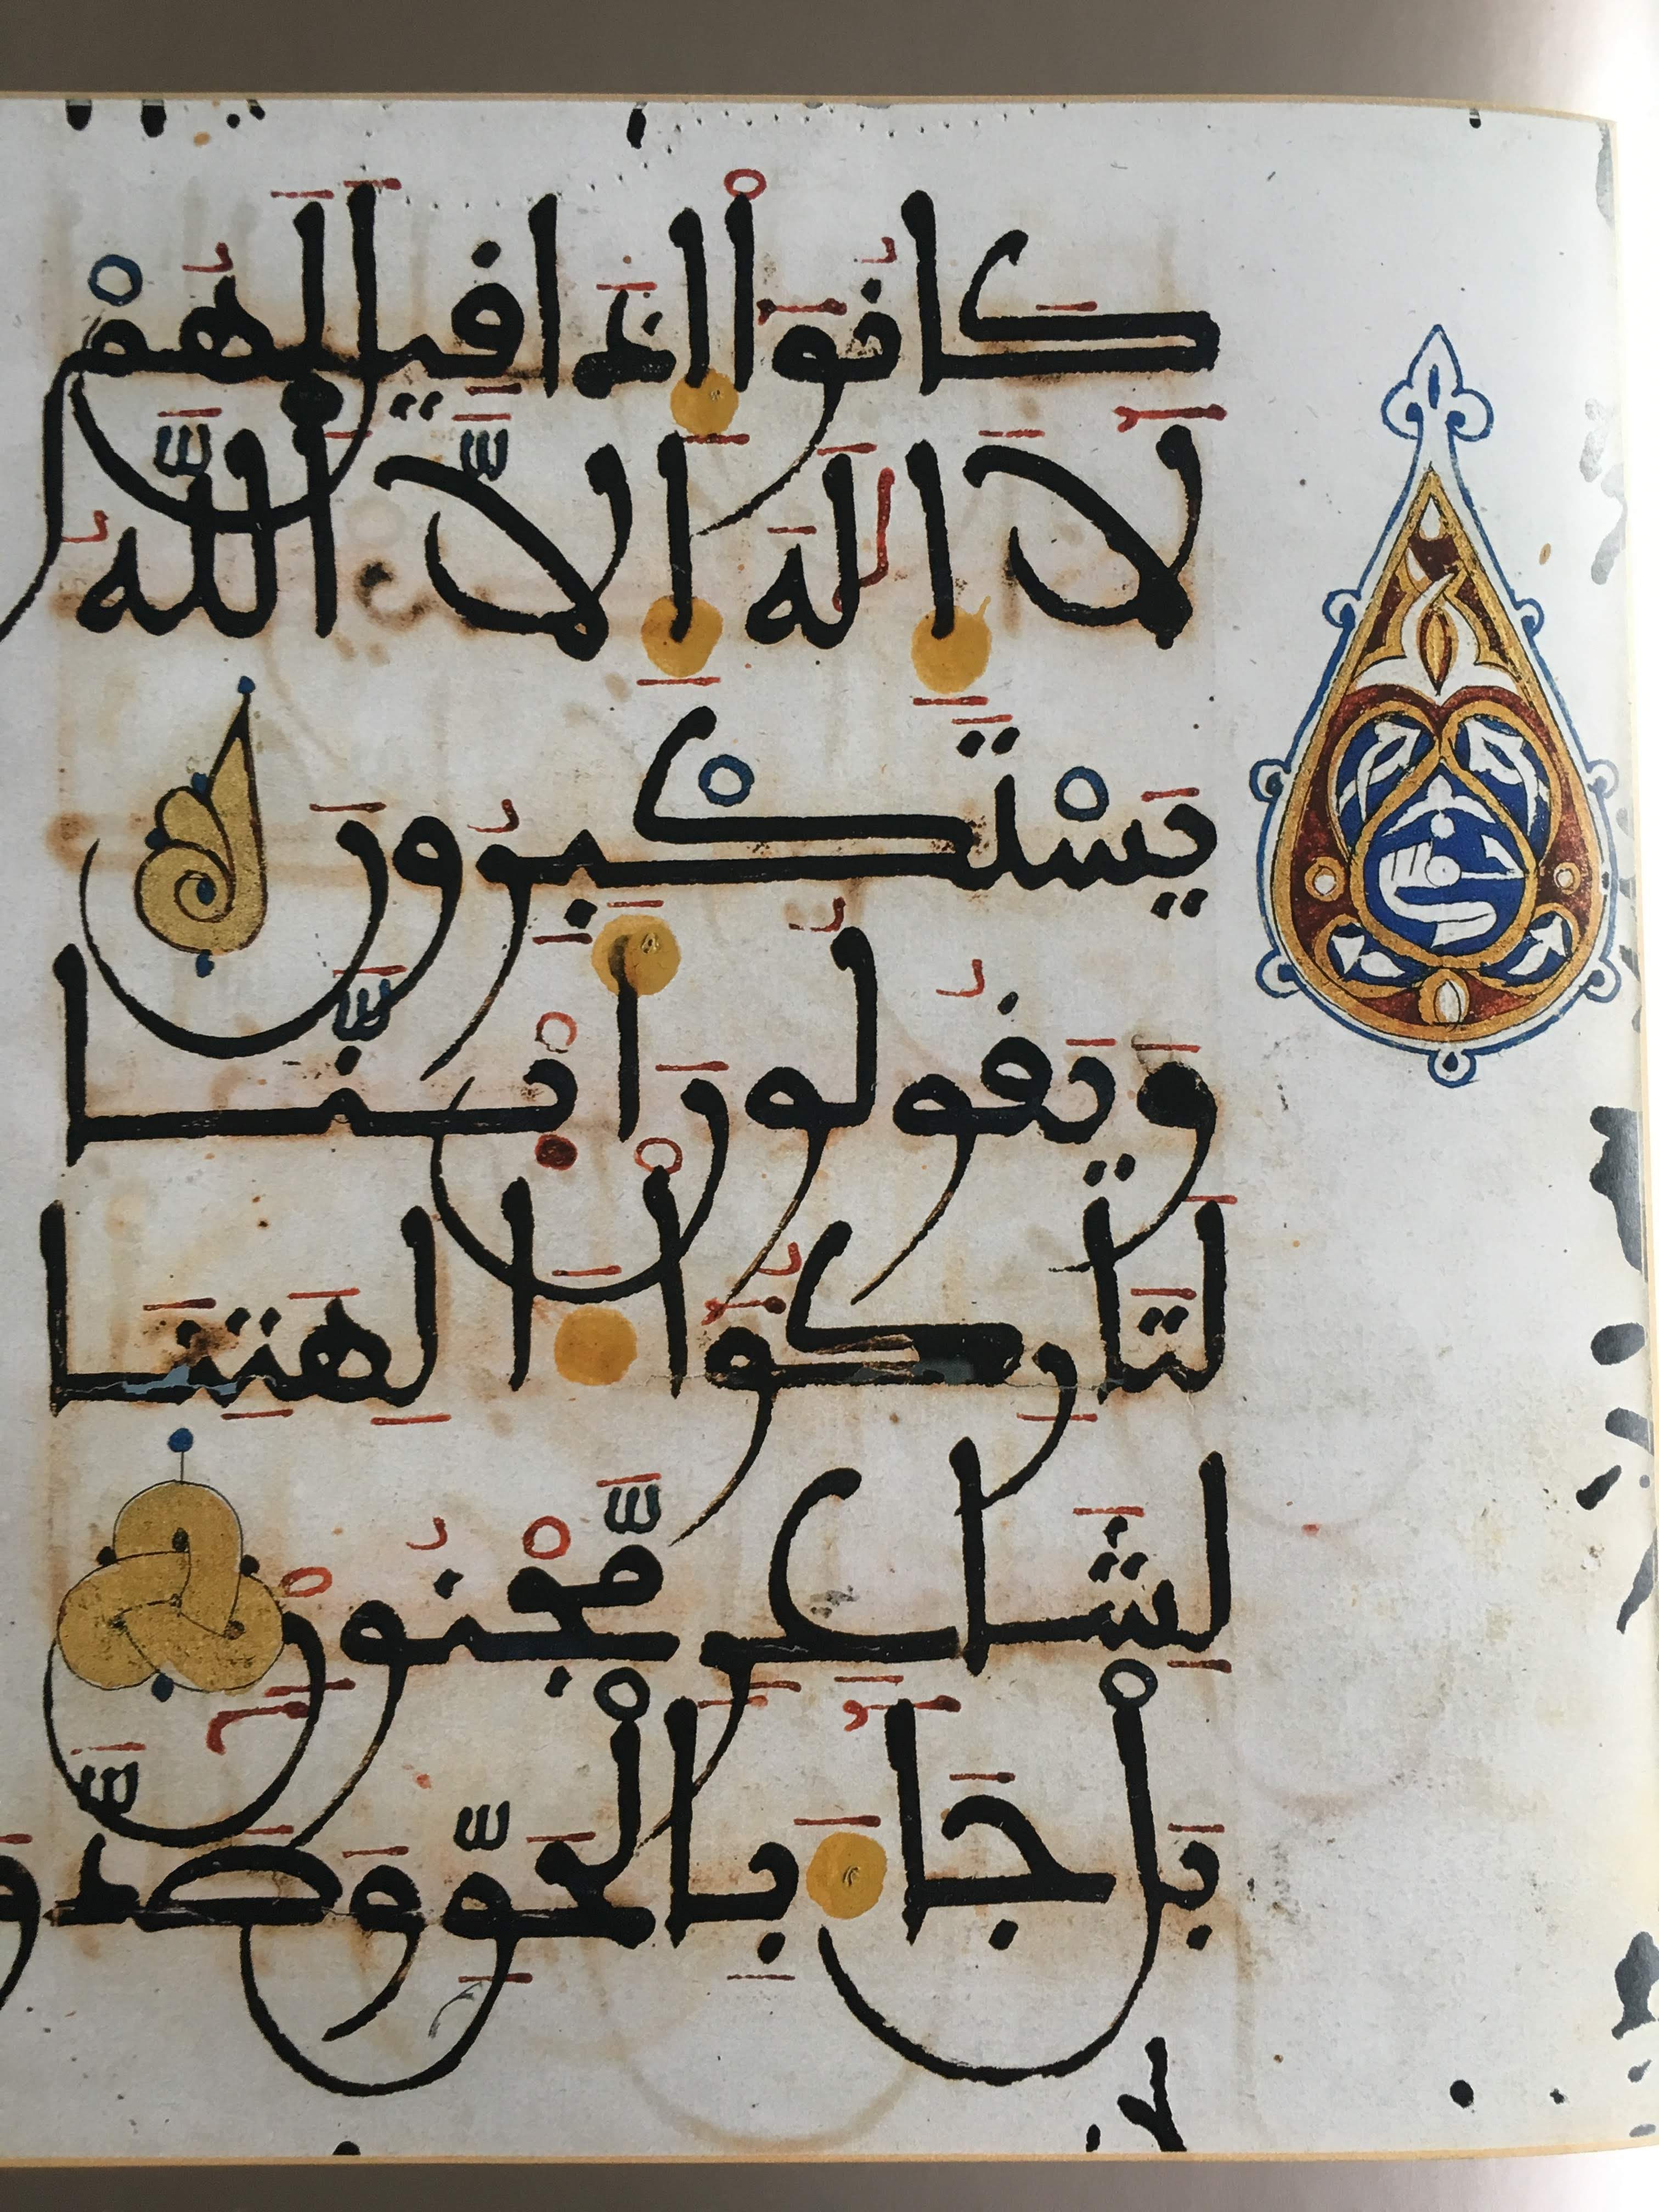 كَانُوٓاْ إِذَا قِيلَ لَهُمْ
لَآ إِلَٰهَ إِلَّا اَللَّهُ
يَسْتَكْبِرُونَ
وَيَقُولُونَ أَىِٕنَّا
لَتَارِكُوٓاْ ءَالِهَتِنَا
لِشَاعِرٍ مَّجْنُونٍ
بَلْ جَآءَ بِالْحَقِّ وَصَدَّقَ